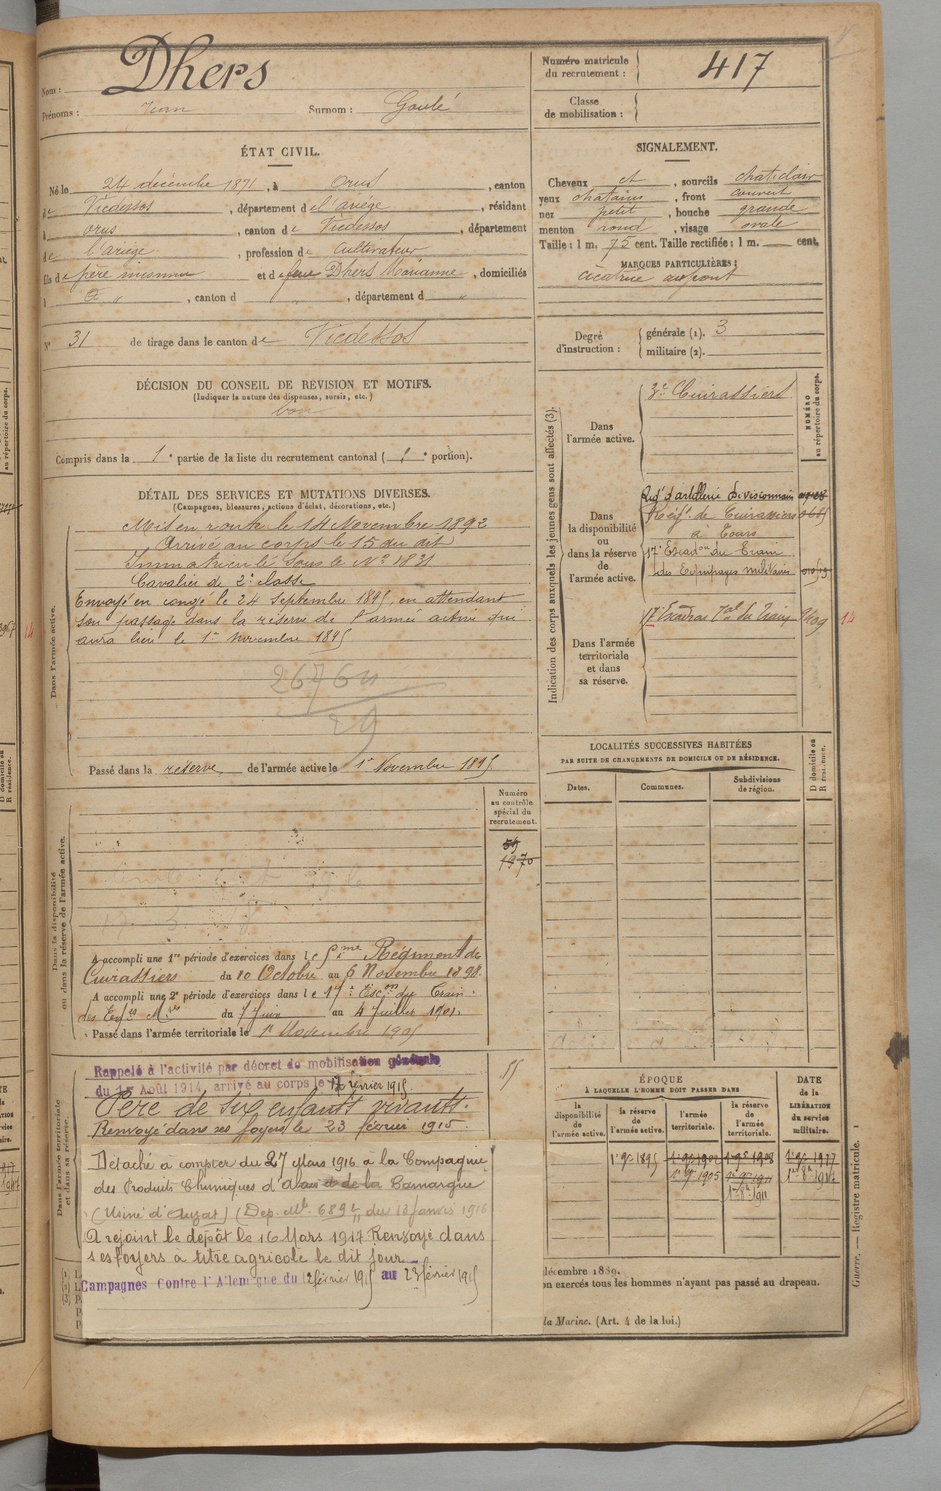 Nom : Dhers
Prénoms : Jean Surnom : Goulé
ÉTAT CIVIL.
Né le 24 décembre 1871, à Orus, canton
de Vicdessos, département de l'Ariège, résidant
à Orus, canton de Vicdessos, département
de l'Ariège, profession de Cultivateur
fils de père inconnu et de feue Dhers Marianne, domiciliés
à " , canton d " , département d "
N° 31 de tirage dans le canton de Vicdessos
DÉCISION DU CONSEIL DE REVISION ET MOTIFS.
(Indiquer la nature des dispenses, sursis, etc.)
bon
Compris dans la 1e partie de la liste du recrutement cantonal ( e portion).
DÉTAIL DES SERVICES ET MUTATIONS DIVERSES.
(Campagnes, blessures, actions d'éclat, décorations, etc.)
Dans l'armée active.
Mis en route le 14 Novembre 1892
Arrivé au corps le 15 du dit
Immatriculé sous le N° 1831
Cavalier de 2e classe
Envoyé en congé le 24 Septembre 1895, en attendant
son passage dans la réserve de l'armée active qui
aura lieu le 1er novembre 1895
29
Passé dans la réserve de l'armée active le 1er Novembre 1895
Numéro
au contrôle
spécial du
recrutement.
59
1970
Dans la disponibilité
ou dans la réserve de l'armée active.
A accompli une 1re période d'exercices dans le 5me Régiment de
Cuirassiers du 10 Octobre au 6 Novembre 1898.
A accompli une 2e période d'exercices dans le 17e Escon du Train
des Eqges Mres du 7 Juin au 4 Juillet 1901.
Passé dans l'armée territoriale le 1er Novembre 1905
Dans l'armée territoriale
et dans sa réserve.
Rappelé à l'activité par décret de mobilisation générale
du 1er Août 1914, arrivé au corps le février 1915
Père de six enfants vivants.
Renvoyé dans ses foyers le 23 février 1915.
Détaché à compter du 27 Mars 1916 à la Compagnie
des Produits Chimiques d'Alais et de la Camargue
(Usine d'Auzat) (Dep. Mle 6892 du 13 janvier 1916
A rejoint le dépôt le 16 Mars 1917 Renvoyé dans
ses foyers à titre agricole le dit jour
Campagnes contre l'Allemagne du 12 février 1915 au 23 février 1915
Numéro matricule
du recrutement : 417
Classe
de mobilisation :
SIGNALEMENT.
Cheveux et, sourcils chat. clair
yeux chatains, front couvert
nez petit, bouche grande
menton rond, visage ovale
Taille : 1 m. 75 cent. Taille rectifiée : 1 m. cent.
MARQUES PARTICULIÈRES :
cicatrice au front
Degré
d'instruction :
générale (1). 3
militaire (2).
Indication des corps auxquels les jeunes gens sont affectés (3).
NUMÉRO
au répertoire du corps.
Dans
l'armée active.
3e Cuirassiers
Dans
la disponibilité
ou
dans la réserve
de
l'armée active.
Régt d'artillerie Divisionnaire
Régt de Cuirassiers
à Tours
17e Escadon du Train
des Equipages militaires
Dans l'armée
territoriale
et dans
sa réserve.
17e Escadron Tal du Train 14
LOCALITÉS SUCCESSIVES HABITÉES
PAR SUITE DE CHANGEMENTS DE DOMICILE OU DE RÉSIDENCE.
Dates.
Communes.
Subdivisions
de région.
D domicile ou
R résidence.
ÉPOQUE
À LAQUELLE L'HOMME DOIT PASSER DANS
la
disponibilité
de
l'armée active.
la réserve
de
l'armée active.
l'armée
territoriale.
la réserve
de
l'armée
territoriale.
DATE
de la
LIBÉRATION
du service
militaire.
1er 9bre 1895 1er 9bre 1908 1er 9bre 1917
1er 9bre 1905 1er 9bre 1911
1er 8bre 1911
décembre 1889.
on exercés tous les hommes n'ayant pas passé au drapeau.
la Marine. (Art. 4 de la loi.)
Guerre. — Registre matricule. 1